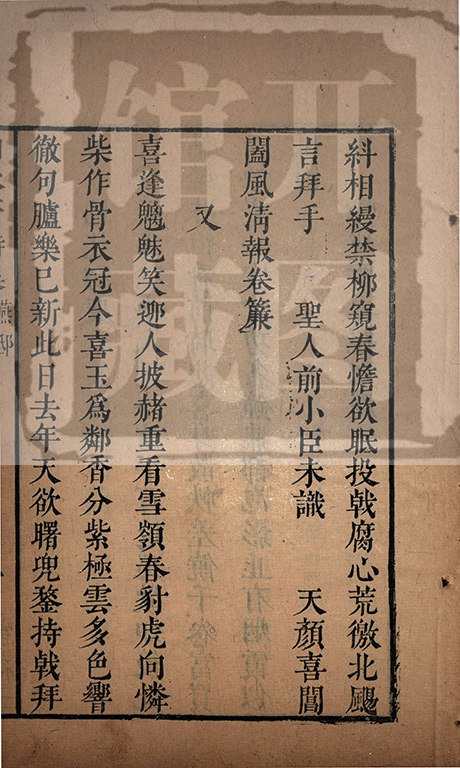 糾相縵禁柳窺春憺欲眠投戟腐心荒徼北颺
言拜手 聖人前小臣未識 天顔喜閶
闔風淸報卷簾
又
喜逢魑魅笑迎人披赭重看雪嶺春豺虎向憐
柴作骨衣冠今喜玉爲鄰香分紫極雲多色響
徹句臚樂已新此日去年天欲曙兜鍪持戟拜
开图馆藏